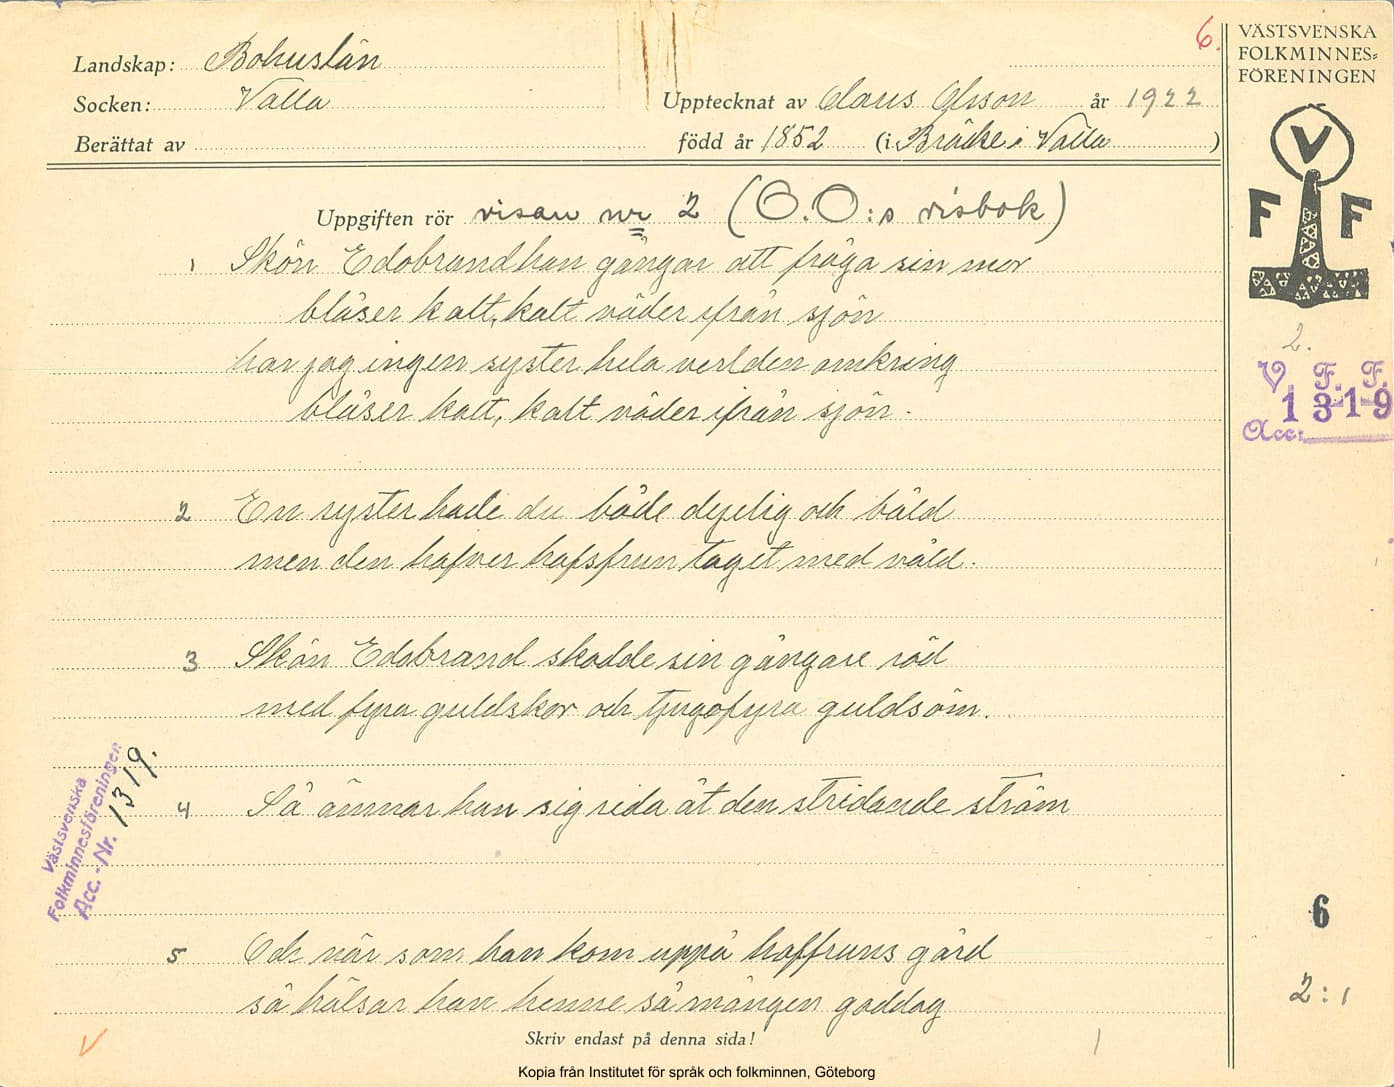 6.
VÄSTSVENSKA
FOLKMINNES=
FÖRENINGEN
Landskap: Bohuslän
Socken: Valla
Upptecknat av Claus Olsson år 1922
Berättat av
född år 1852 (i Bräcke i Valla)
V
F F
Uppgiften rör visan nr 2 (C.O.:s visbok)
1 Skön Edobrand han gångar att fråga sin mor
blåser kalt, kalt väder ifrån sjön
har jag ingen syster hela verlden omkring
blåser kalt, kalt väder ifrån sjön.
2.
V. F. F.
1319
Acc:
2 En syster hade du både dejelig och båld
men den hafver hafsfrun taget med våld.
3 Skön Edobrand skodde sin gångare röd
med fyra guldskor och tjugofyra guldsöm.
4 Så ämnar han sig rida åt den stridande ström
Västsvenska
Folkminnesföreningen
Acc.-Nr. 1319.
5 Och när som han kom uppå haffruns gård
så hälsar han henne så mången goddag
6
2:1
Skriv endast på denna sida!
V
1
Kopia från Institutet för språk och folkminnen, Göteborg